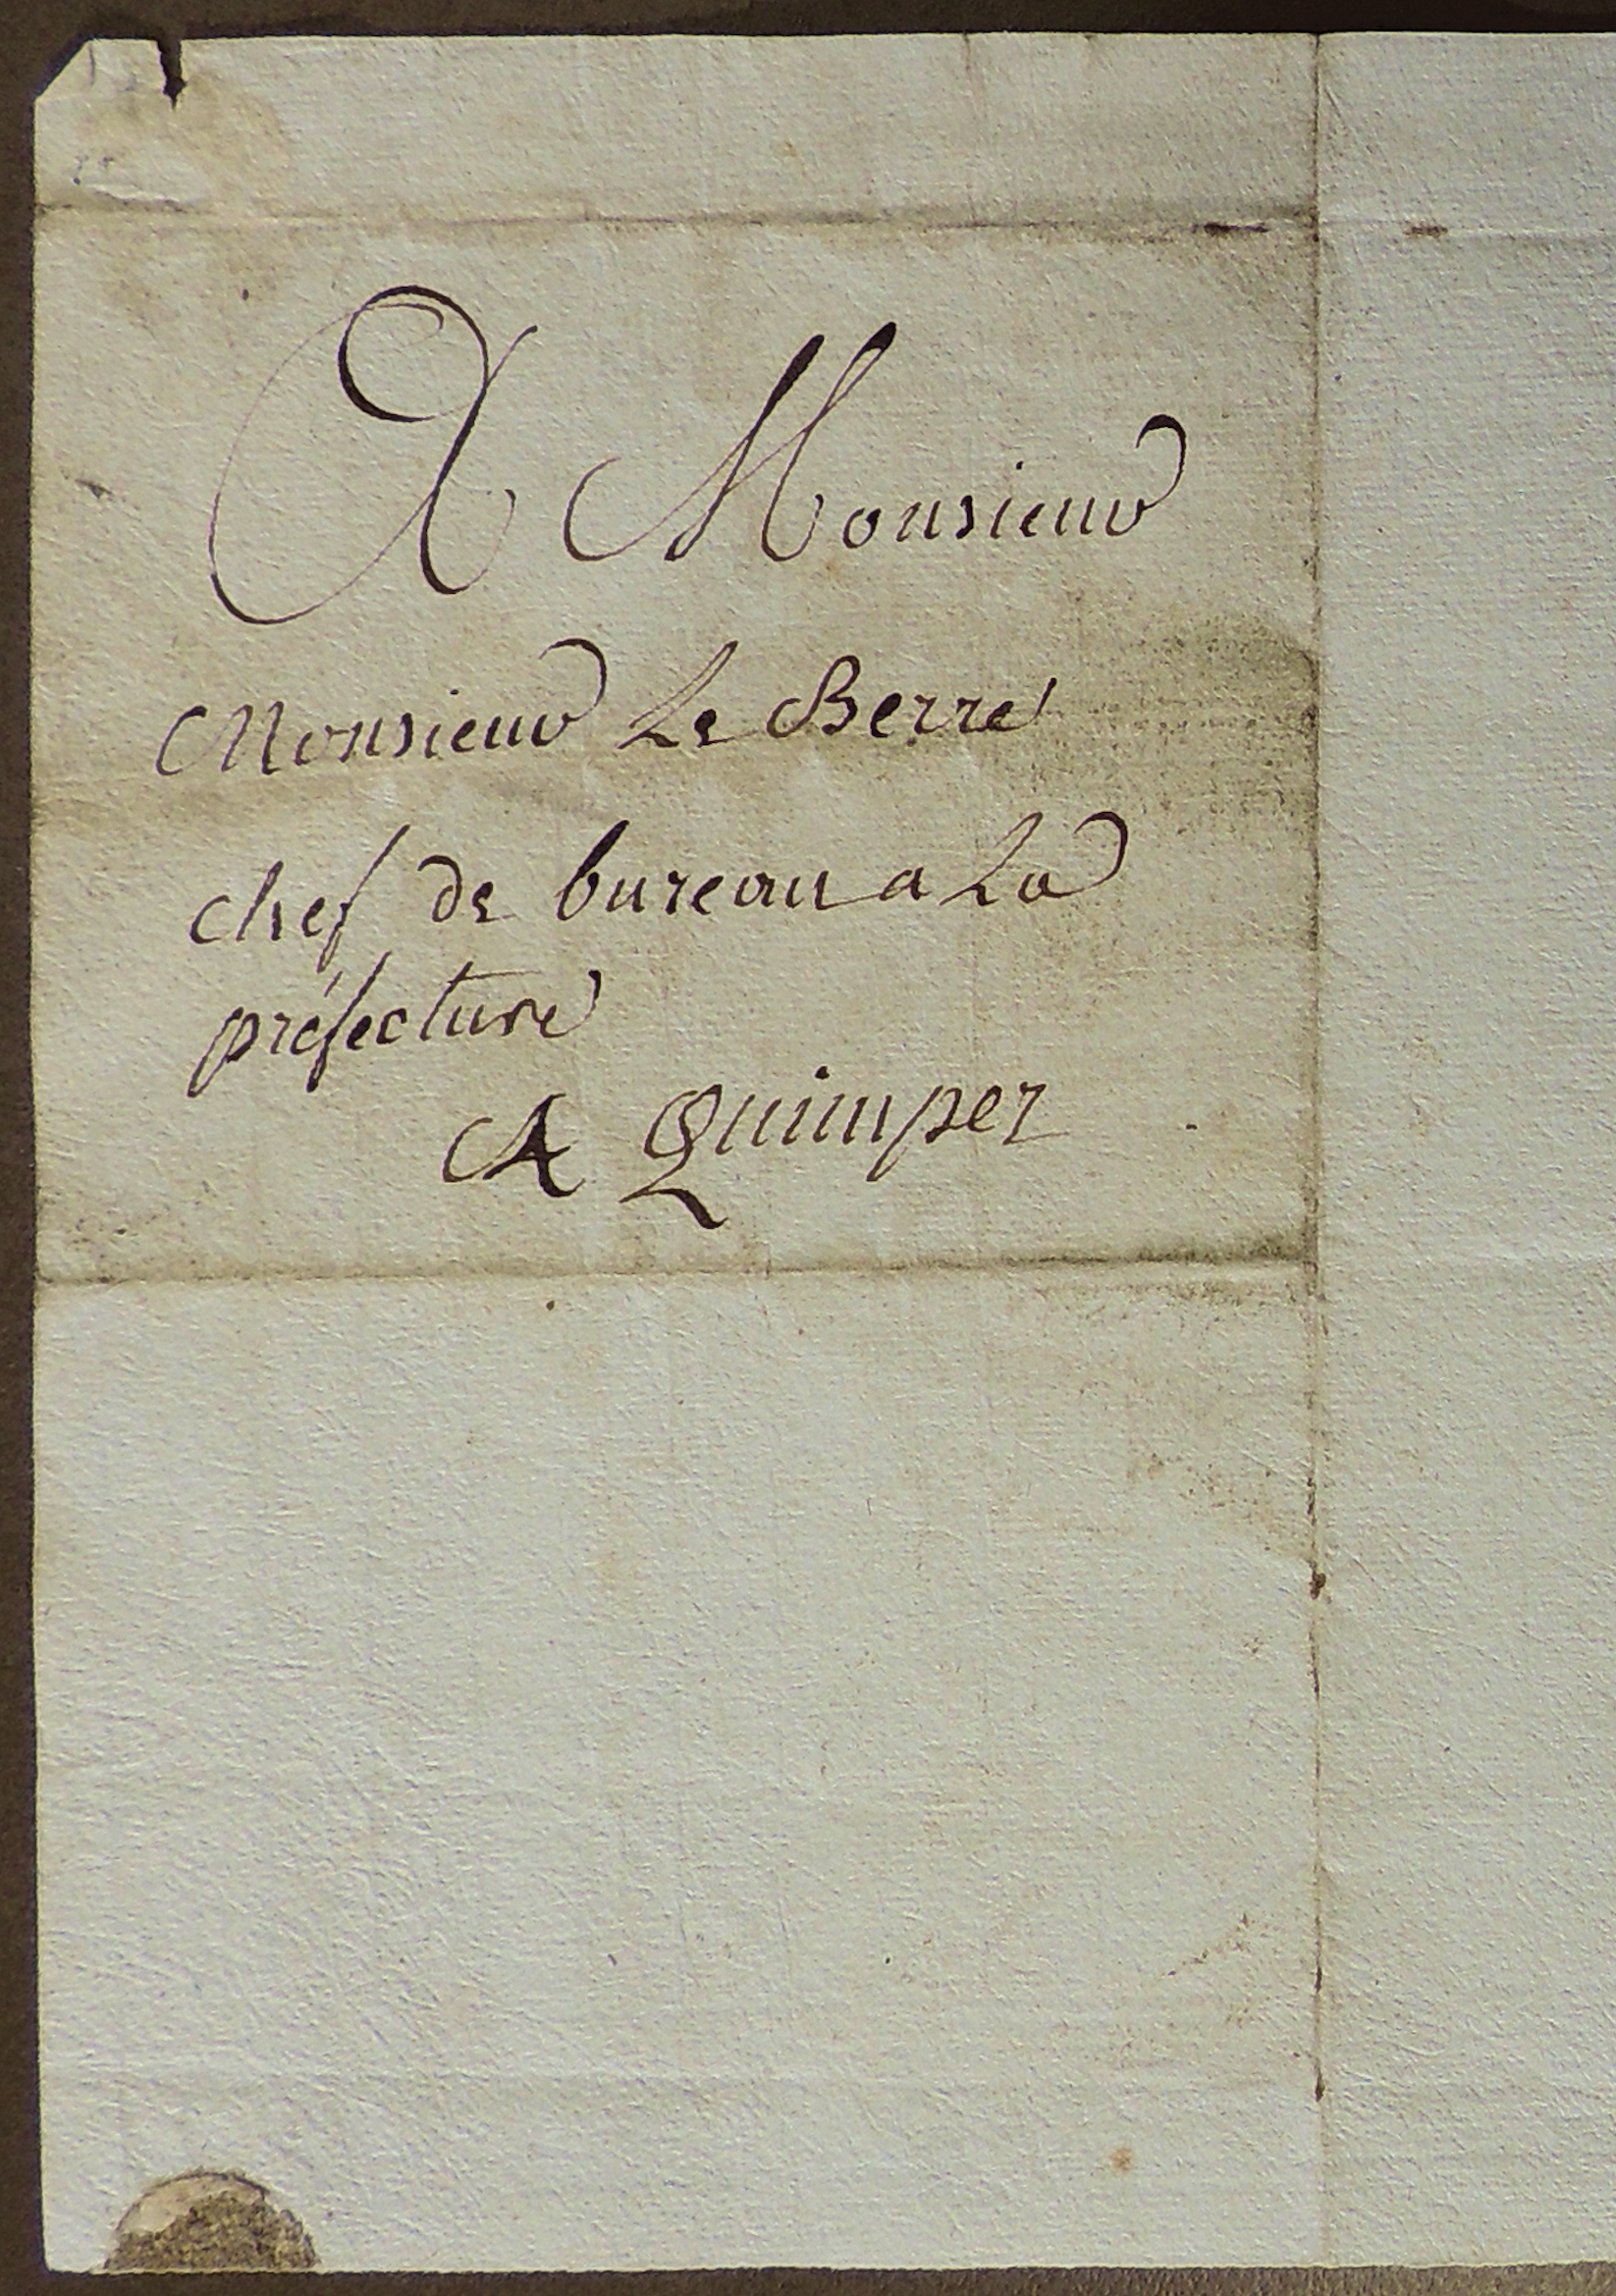 A Monsieur
Monsieur Le Berre
chef de bureau a La
préfecture
A Quimper